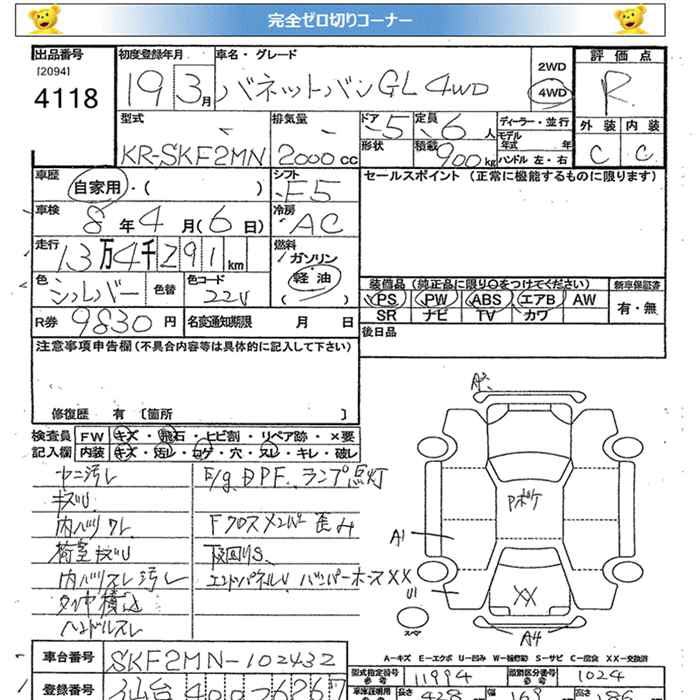 完全ゼロ切りコーナー
出品番号 初度登録年月 車名・グレード 2WD 評価点
[2094]
4118 19 3月 バネットバンGL 4WD 4WD R
外装 内装
型式 排気量 ドア 定員 ディーラー・並行
KR-SKF2MN 2000cc 5 6人 モデル年式 年 C C
形状 積載 900kg ハンドル 左・右
車歴 シフト セールスポイント(正常に機能するものに限ります)
自家用・( ) F5
車検 冷房
8年4月(6日) AC
走行 燃料
13万4千291km ガソリン
軽油
色 色替 色コード ( )
シルバー 22V
装備品(純正品に限り○をつけてください) 新車保証書
PS PW ABS エアB AW 有・無
SR ナビ TV カワ
R券 9830円 名変通知期限 月 日
後日品
注意事項申告欄(不具合内容等は具体的に記入して下さい)
修復歴 有 [箇所 ]
検査員 FW キズ・飛石・ヒビ割・リペア跡・×要
記入欄 内装 キズ・汚レ・コゲ・穴・スレ・キレ・破レ
ヤニ汚レ E/g DPF ランプ点灯
キズU
内バリワレ Fクロスメンバー歪み
荷室キズU 下回りS
内バリスレ汚レ エンドパネルU バンパーホースXX
タイヤ積込
ハンドルスレ
A2
Pボケ
A1
U1
XX
スペア
A4
A-キズ E-エクボ U-凹み W-補修跡 S-サビ C-腐食 XX-交換済
車台番号 SKF2MN-102432
型式指定番号 11994 類別区分番号 1024
登録番号 仙台400そ6267
長さ 428 幅 163 高さ 186